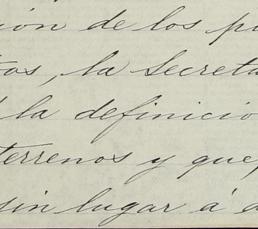 ión de los p
tos, la Secreta
la definicio
terrenos y que
sin lugar á d